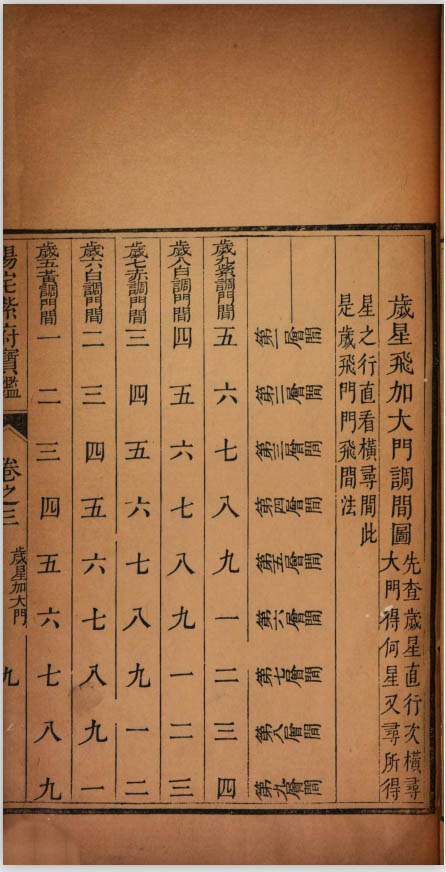 歲星飛加大門調間圖
先查歲星直行次橫尋
大門得何星又尋所得
星之行直看橫尋間此
是歲飛門門飛間法
第一層間 第二層間 第三層間 第四層間 第五層間 第六層間 第七層間 第八層間 第九層間
歲九紫調門間 五 六 七 八 九 一 二 三 四
歲八白調門間 四 五 六 七 八 九 一 二 三
歲七赤調門間 三 四 五 六 七 八 九 一 二
歲六白調門間 二 三 四 五 六 七 八 九 一
歲五黃調門間 一 二 三 四 五 六 七 八 九
陽宅紫府寶鑑 卷之三 歲星加大門 九